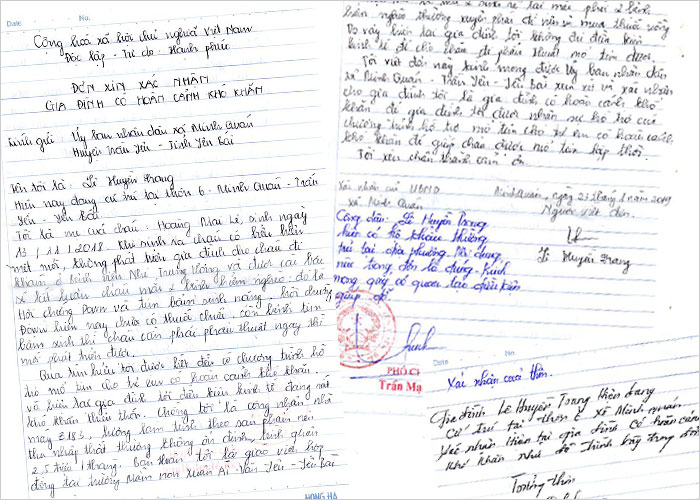 Date No.
Cộng hoà xã hội chủ nghĩa Việt Nam
Độc lập - Tự do - Hạnh phúc
ĐƠN XIN XÁC NHẬN
GIA ĐÌNH CÓ HOÀN CẢNH KHÓ KHĂN
Kính gửi: Uỷ ban nhân dân xã Minh Quán
Huyện Trấn Yên - Tỉnh Yên Bái
Tên tôi là: Lê Huyền Trang
Hiện nay đang cư trú tại thôn 6 - Minh Quán - Trấn
Yên - Yên Bái
Tôi là mẹ của cháu: Hoàng Mai Lê, sinh ngày
13/11/2018. Khi sinh ra cháu có biểu hiện
mệt mỏi, không phát triển gia đình cho cháu đi
khám ở bệnh viện Nhi Trung Ương và được các bác
sĩ kết luận cháu mắc 2 bệnh hiểm nghèo: đó là
Hội chứng Down và tim bẩm sinh nặng. Hội chứng
Down hiện nay chưa có thuốc chữa, còn bệnh tim
bẩm sinh thì cháu cần phải phẫu thuật ngay thì
mới phát triển được.
Qua tìm hiểu tôi được biết đến có chương trình hỗ
trợ mổ tim cho trẻ em có hoàn cảnh khó khăn
và hiện tại gia đình tôi điều kiện kinh tế đang rất
khó khăn thiếu thốn. Chồng tôi là công nhân nhà
máy Z183, lương làm tính theo sản phẩm nên
thu nhập thất thường không ổn định, bình quân
2,5 triệu/tháng. Bản thân tôi là giáo viên hợp
đồng tại trường Mầm non Xuân Ái - Văn Yên - Yên Bái
HONG HA
bần nghèo thường xuyên phải đi viện và mua thuốc uống
Do vậy hiện tại gia đình tôi không đủ điều kiện
kinh tế để cho cháu đi phẫu thuật mổ tim được.
Tôi viết đơn này kính mong được Uỷ ban nhân dân
xã Minh Quán - Trấn Yên - Yên Bái xem xét và xác nhận
cho gia đình tôi là gia đình có hoàn cảnh khó
khăn để gia đình tôi được nhận sự hỗ trợ của
chương trình hỗ trợ mổ tim cho trẻ em có hoàn cảnh
khó khăn để giúp cháu được mổ tim kịp thời.
Tôi xin chân thành cảm ơn
Xác nhận của UBND
xã Minh Quán
Minh Quán, ngày 23 tháng 1 năm 2019
Người viết đơn
Công dân: Lê Huyền Trang
hiện có hộ khẩu thường
trú tại địa phương. Nội dung
nêu trong đơn là đúng. Kính
mong quý cơ quan tạo điều kiện
giúp đỡ.
Lê Huyền Trang
PHÓ C
Trần Mạ
Date No.
Xác nhận của thôn.
Gia đình Lê Huyền Trang Hiện đang
Cư trú tại thôn 6 xã Minh Quán
Xác nhận hiện tại gia đình có hoàn cảnh
khó khăn như đã trình bày trong đơn
Trưởng thôn